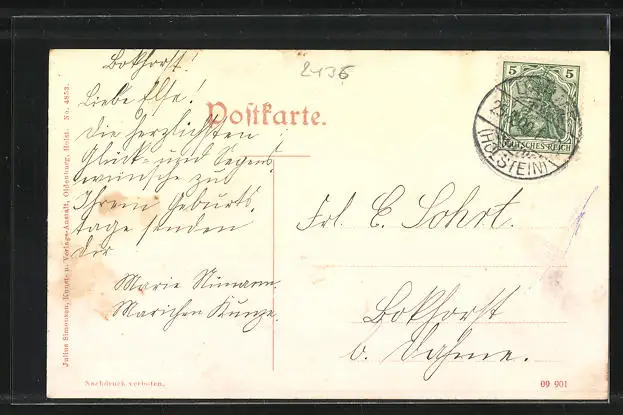 Bokhorst!
2136
Liebe Else!
Die herzlichsten
Glück- und Segens
wünsche zu
Ihrem Geburts
tage senden
dir
Marie Nimann
Mariechen Kunze.
Postkarte.
5 5
DEUTSCHES REICH
(HOLSTEIN)
Frl. E. Sohrt.
Bokhorst
b. Dahme.
Julius Simonsen, Kunst- u. Verlags-Anstalt, Oldenburg, Holst. No. 4853.
Nachdruck verboten.
09 901